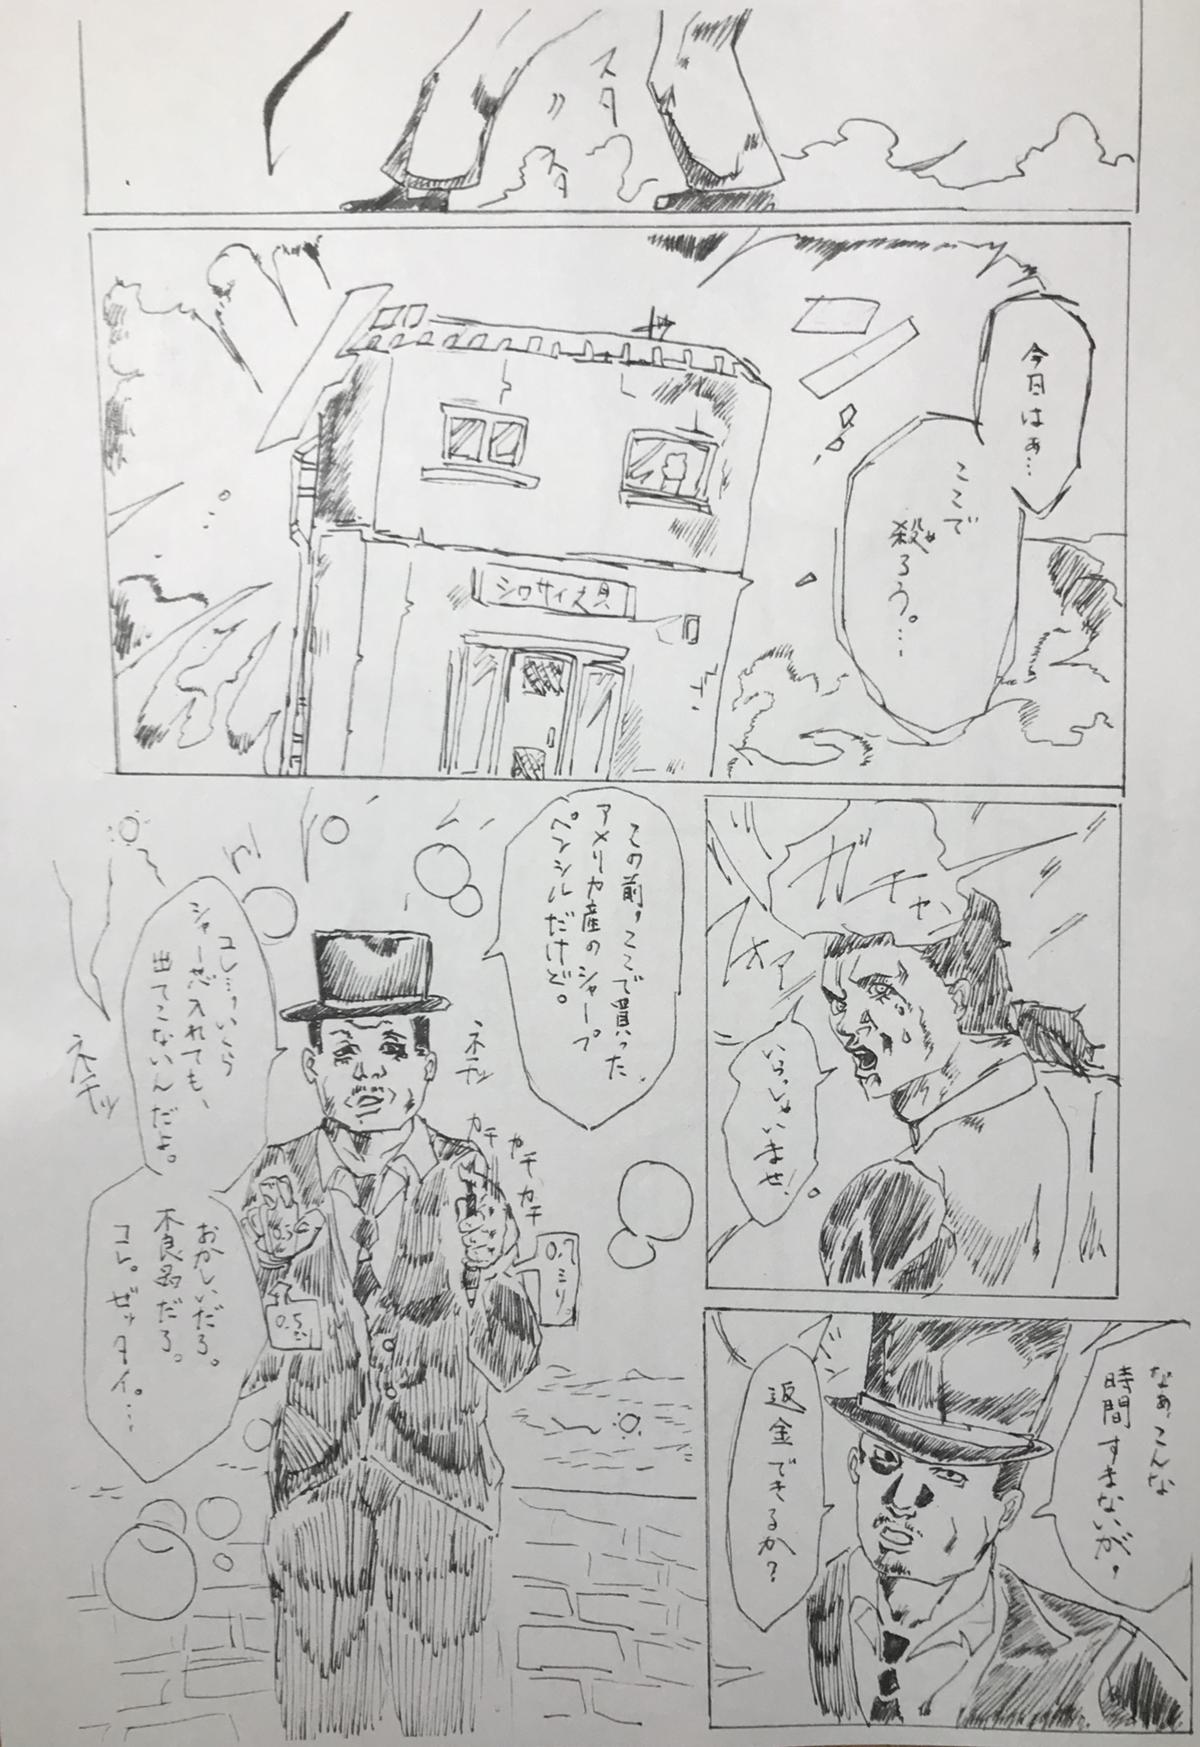 スタ
スタ
今日はぁ…
ここで
殺ろう。…
シロサイ文具
ガチャン
いらっしゃいませ。
なぁ、こんな
時間すまないが、
返金できるか?
この前、ここで買った
アメリカ産のシャープ
ペンシルだけど。
コレ…っいくら
シャー芯入れても、
出てこないんだよ。
おかしいだろ。
不良品だろ。
コレ。ゼッタイ。…
ネチッ
ネチッ
カチ
カチ
カチ
0.5
0.5ミリ